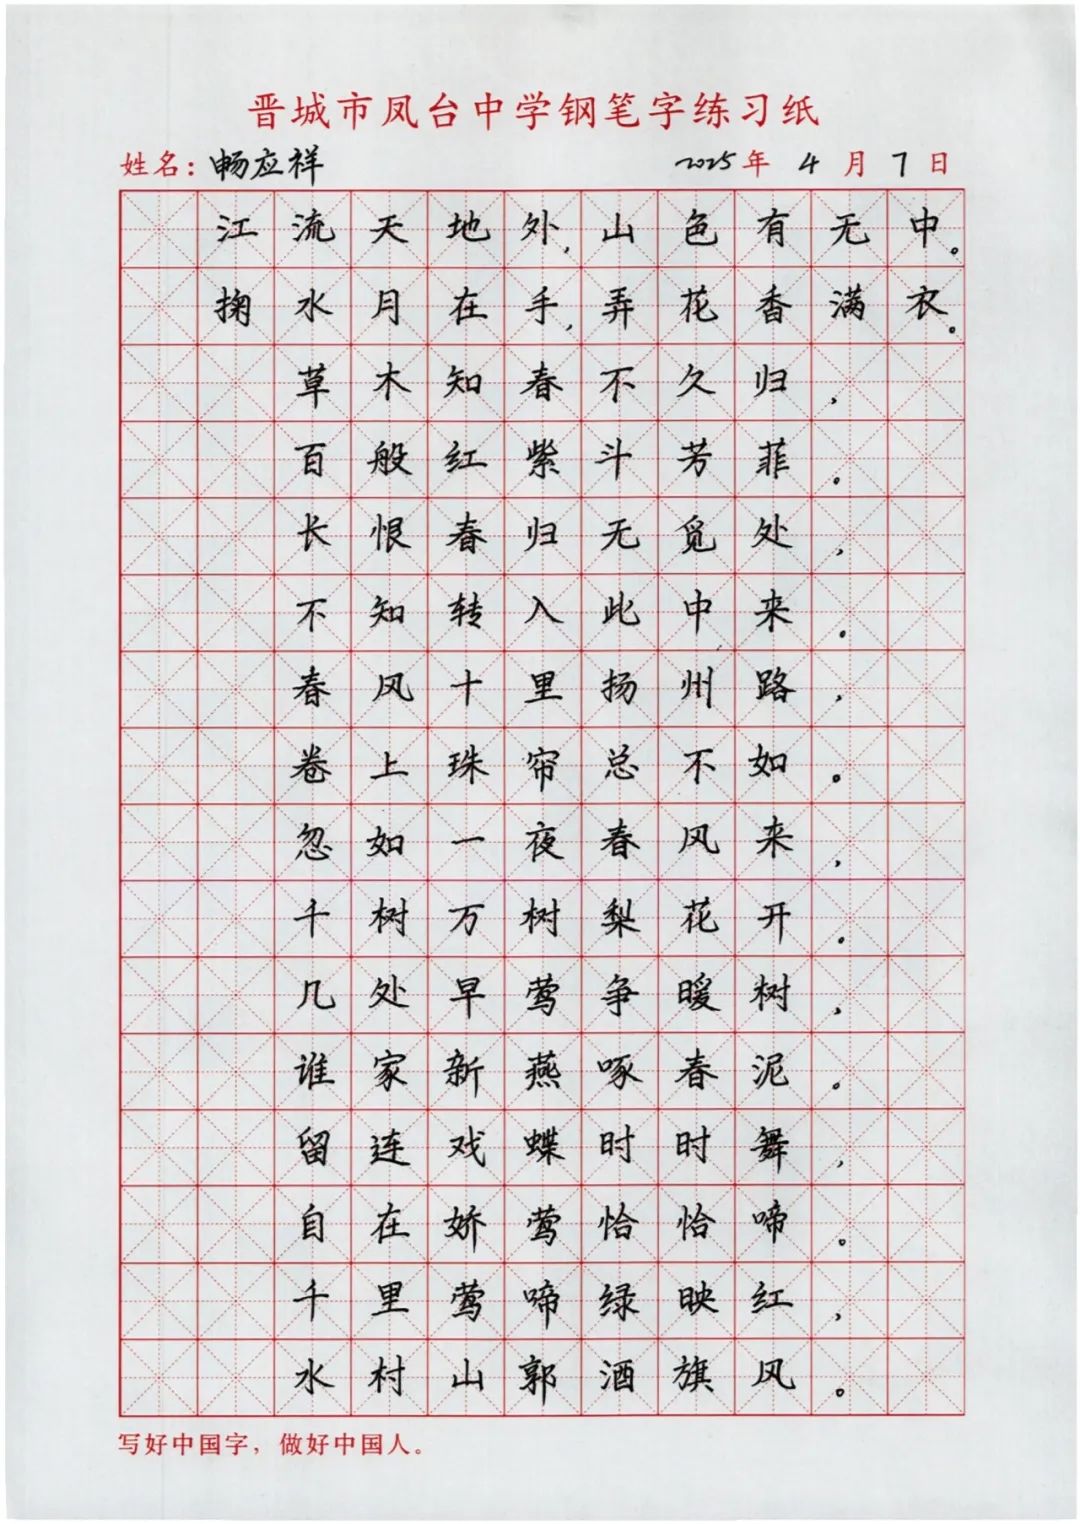 晋城市凤台中学钢笔字练习纸
姓名：畅应祥 2025年 4月 7日
江流天地外，山色有无中。
掬水月在手，弄花香满衣。
草木知春不久归，
百般红紫斗芳菲。
长恨春归无觅处，
不知转入此中来。
春风十里扬州路，
卷上珠帘总不如。
忽如一夜春风来，
千树万树梨花开。
几处早莺争暖树，
谁家新燕啄春泥。
留连戏蝶时时舞，
自在娇莺恰恰啼。
千里莺啼绿映红，
水村山郭酒旗风。
写好中国字，做好中国人。